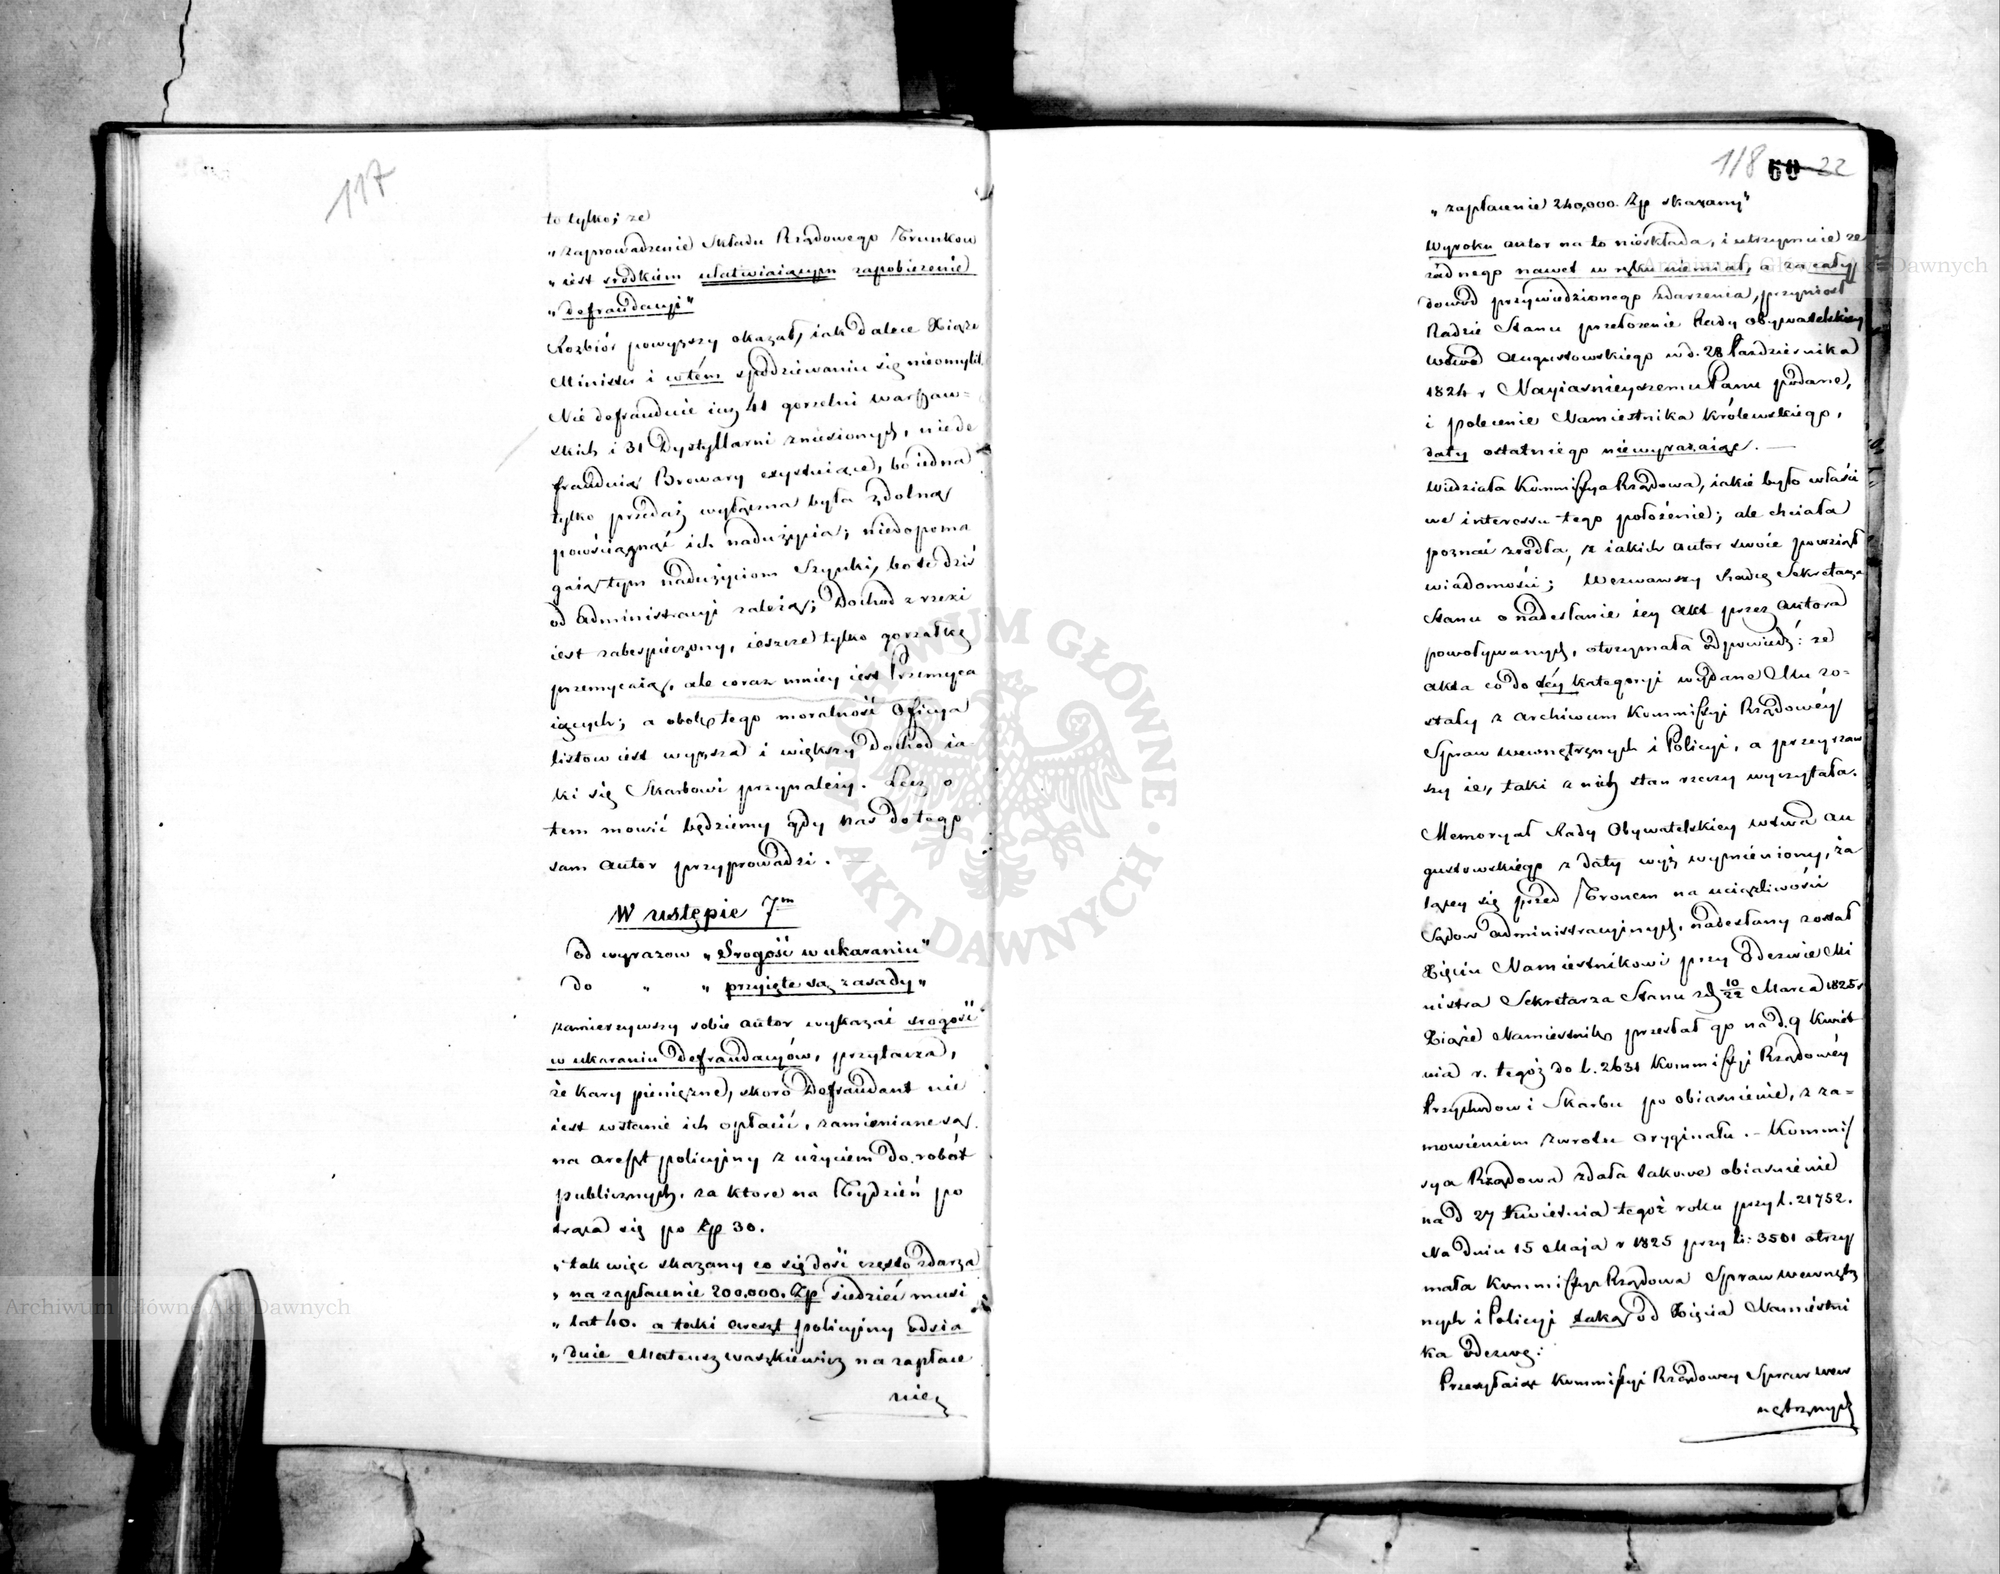 117
to tylko; ze
„Zaprowadzenie Składu Rządowego Trunkow
„iest srodkiem ułatwiaiącym zapobieżenie
„defraudacyi"
Rozbiór powyższy okazał, iak dalece Xiąże
Minister i w tém spodziewaniu się nieomylił.
Nie defrauduie iuż 41 gorzelni warszaw-
skich i 31 Dystyllarni zniesionych, niede
frauduią Browary exystuiące, bo iedna
tylko przedaż wyłączna była zdolną
powściągnąć ich nadużycia; niedopoma
gaią tym nadużyciom Szynki, bo te dziś
od administracyi zależą; Dochod z rzezi
iest zabezpieczony, ieszcze tylko gorzałkę
przemycaią, ale coraz mniey iest Przemyca
iących; a obok tego moralność Oficya
listow iest wyższa i większy Dochod ia-
ki się Skarbowi przynależy. Lecz o
tem mowić będziemy gdy nas do tego
sam autor przyprowadzi. —
W ustępie 7m
od wyrazow „Srogość w ukaraniu"
do " „przyięte są zasady„
Zamierzywszy sobie autor wykazać srogość
w ukaraniu Defraudacyów, przytacza,
że kary pieniężne, skoro Defraudant nie
iest wstanie ich opłacić, zamieniane są
na areszt policyiny z użyciem do robót
publicznych, za ktore na Tydzień po
trąca się po Zp 30.
„tak więc skazany co się dość często zdarza
„na zapłacenie 200,000. Zp siedzieć musi
„lat 40. a taki areszt policyiny odsia
„duie Mateusz Waszkiewicz na zapłace
nie
118 60 22
„zapłacenie 240,000. Zp skazany"
Wyroku autor na to nieskłada, i utrzymuie ze
żadnego nawet w ręku niemiał, a za cały
dowód przywiedzionego zdarzenia, przyniosł
Radzie Stanu przełożenie Rady Obywatelskiey
Wdwa Augustowskiego w d. 28 Października
1824 r Nayiasnieyszemu Panu podane,
i polecenie Namiestnika Królewskiego,
daty ostatniego niewyrażaiąc. —
Widziała Kommissya Rządowa, iakie było właści
we interessu tego położenie; ale chciała
poznać zrodła, z iakich autor swoie powziął
wiadomości; Wezwawszy Radcę Sekretarza
Stanu o nadesłanie iey akt przez autora
powoływanych, otrzymała odpowiedź: ze
akta co do téy kategoryi wydane Mu zo-
stały z archiwum Kommissyi Rządowéy
Spraw wewnętrznych i Policyi, a przeyrzaw
szy ie, taki z nich stan rzeczy wyczytała.
Memoryał Rady Obywatelskiey Wdwa Au
gustowskiego z daty wyż wymieniony, ża
lącey się przed Tronem na uciążliwości
Sądow administracyinych, nadesłany został
Xięciu Namiestnikowi przy Odezwie Mi
nistra Sekretarza Stanu z d 10/22 Marca 1825 r
Xiąże Namiestnik przesłał go na d. 9 Kwiet
nia r. tegoż do l. 2631 Kommissyi Rządowéy
Przychodow i Skarbu po obiasnienie, z za-
mowieniem zwrotu oryginału. – Kommis
sya Rządowa zdała takowe obiasnienie
na d 27 Kwietnia tegoż roku przy l. 21752.
Na dniu 15 Maja r 1825 przy li: 3501 otrzy
mała Kommissya Rządowa Spraw wewnętrz
nych i Policyi taką od Xięcia Namiestni
ka odezwę:
Przesyłaiąc Kommissyi Rządowey Spraw wew
nętrznych